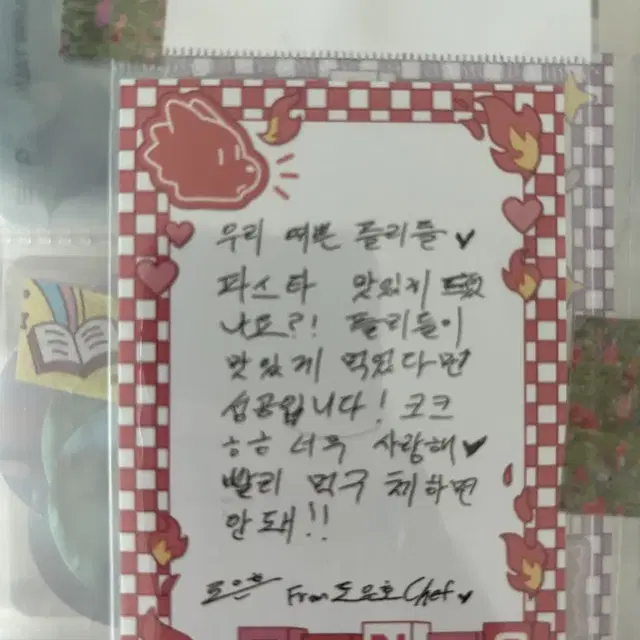 우리 예쁜 플리들♥
파스타 맛있게 드셨
나요?! 플리들이
맛있게 먹었다면
성공입니다! 크크
ㅎㅎ 너무 사랑해♥
빨리 먹구 체하면
안돼!!
도은호 From 도은호 Chef♥